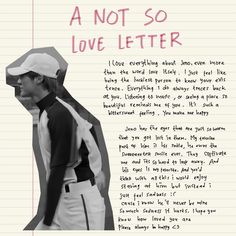 A NOT SO
LOVE LETTER
I love everything about Jeno, even more
than the word love itself. I just feel like
being the luckiest person to know your exis
tence. Everything I do always traces back
at you. Listening to music, or seeing a place so
beautiful reminds me of you. It's such a
bittersweet feeling. You make me happy
Jeno has the eyes that are just so warm
that you get lost in them. My favorite
part of him is his smile, he owns the
sweetest smile ever. They captivate
me and its so hard to look away. And
his eyes is my paradise. And you'd
think with all this i would enjoy
staring at him but instead i
just feel sadness :(
cause i know he'll never be mine
so much sadness it hurts. I hope you
know how loved you are
Please always be happy <3